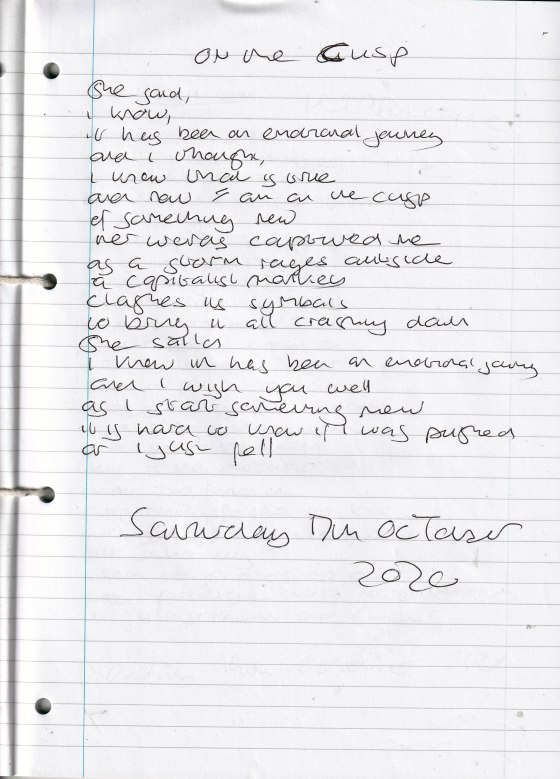 On the Cusp
She said,
i know,
it has been an emotional journey
and i thought,
i know that is true
and now I am on the cusp
of something new
her words captured me
as a storm rages outside
a capitalist market
clashes its symbals
to bring it all crashing down
She said
i know it has been an emotional journey
and i wish you well
as I start something new
it is hard to know if i was pushed
or i just fell
Saturday 17th October
2020